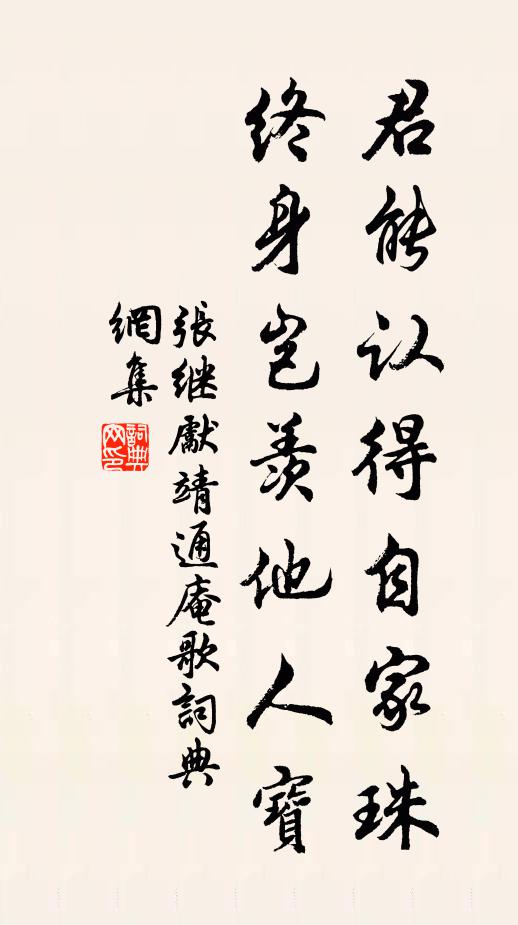 君能认得自家珠
终身岂羨他人寶
張继獻靖通庵歌詞典
網集
詞典网印